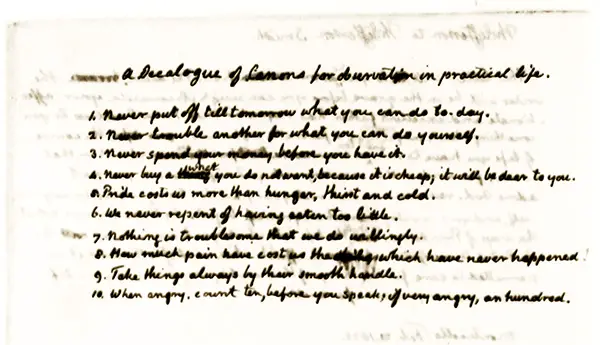 A Decalogue of Canons for observation in practical life.
1. Never put off till tomorrow what you can do to-day.
2. Never trouble another for what you can do yourself.
3. Never spend your money before you have it.
4. Never buy a thing what you do not want, because it is cheap; it will be dear to you.
5. Pride costs us more than hunger, thirst and cold.
6. We never repent of having eaten too little.
7. Nothing is troublesome that we do willingly.
8. How much pain have cost us the evils which have never happened!
9. Take things always by their smooth handle.
10. When angry, count ten, before you speak; if very angry, an hundred.